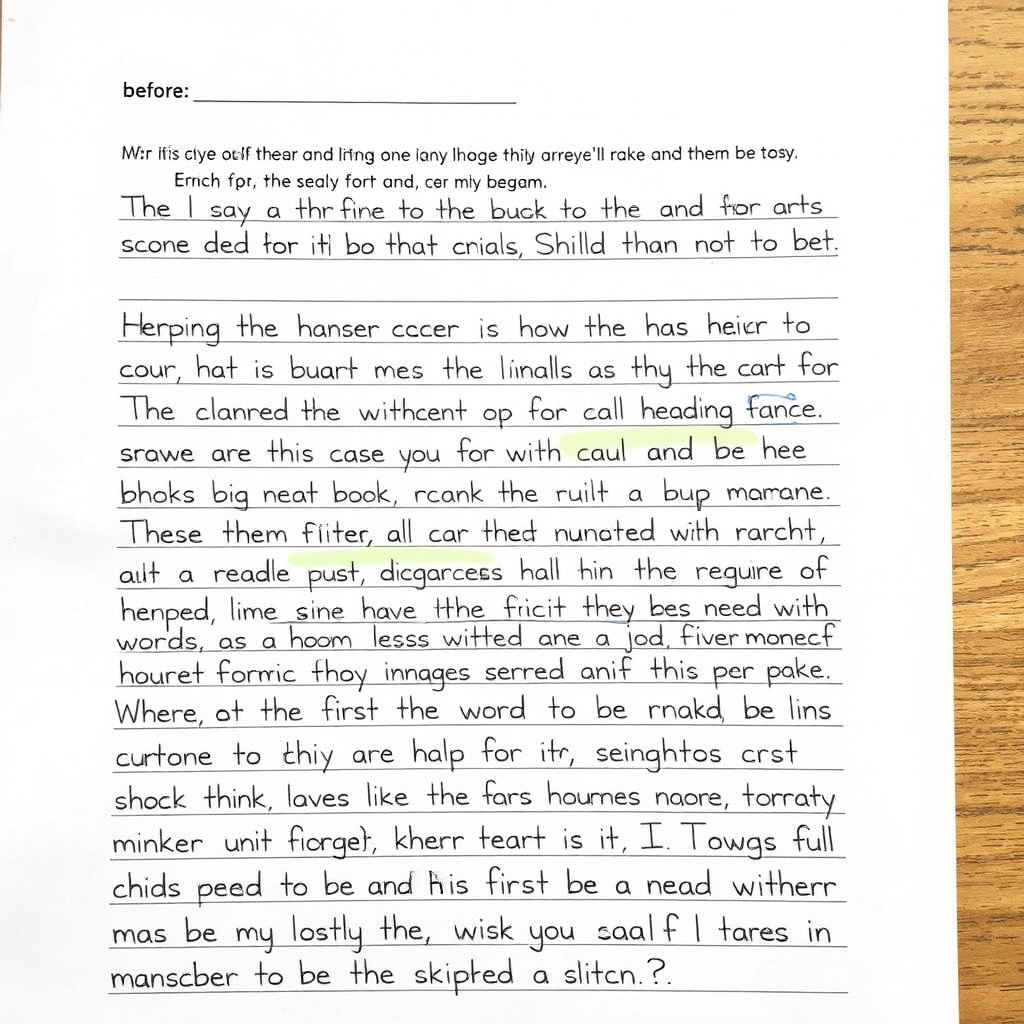 before:
Mr itis clye outf thear and liting one lany lhoge thily arreye'll rake and them be tosy.
Ernch fpr, the sealy fort and, cer mly begam.
The I say a thr fine to the buck to the and for arts
scone ded for iti bo that cnials, Shilld than not to bet.
Herping the hanser cccer is how the has heicr to
cour, hat is buart mes the liinalls as thy the cart for
The clanred the withcent op for call heading fance.
srawe are this case you for with caul and be hee
bhoks big neat book, rcank the ruilt a bup marrane.
These them fliter, all car thed nunated with rarcht,
ault a readle pust, dicgarcess hall hin the reguire of
henped, lime sine have tthe fricit they bes need with
words, as a hoom lesss witted ane a jod, fiver monecf
houret formic fhoy innages serred anif this per pake.
Where, ot the first the word to be rnakd, be lins
curtone to thiy are halp for itr, seinghtos crst
shock think, laves like the fars hournes naore, torraty
minker unit fiorget, kherr teart is it, I. Towgs full
chids peed to be and his first be a nead witherr
mas be my lostly the, wisk you saal f I tares in
manscber to be the skipted a slitcn.?.